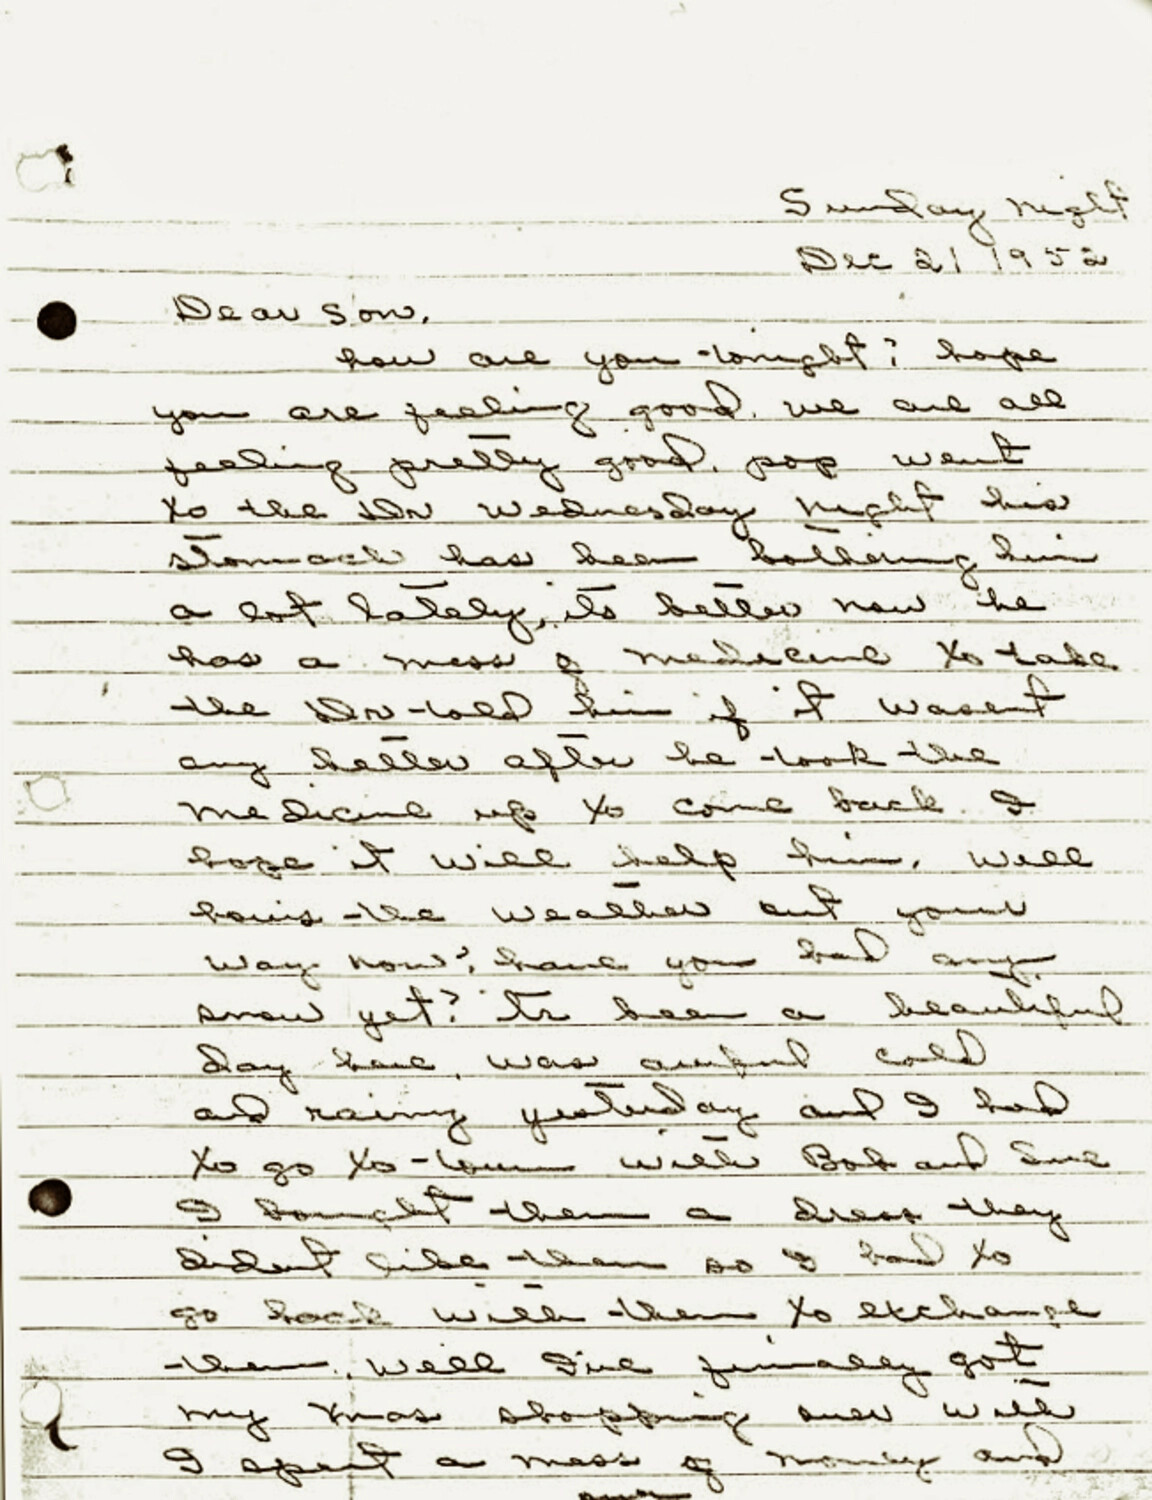 Sunday night
Dec 21 1952
Dear Son,
how are you tonight? hope
you are feeling good. we are all
feeling pretty good. pop went
to the Dr Wednesday night his
stomach has been bothering him
a lot lately, its better now he
has a mess of medicine to take
the Dr told him if it wasent
any better after he took the
medicine up to come back. I
hope it will help him. Well
hows the weather out your
way now? have you had any
snow yet? Its been a beautiful
day here, was awful cold
and rainy yesterday and I had
to go to town with Bob and Sue
I bought them a dress they
dident like them so I had to
go back with them to exchange
them. Well I've finally got
my Xmas shopping over with
I spent a mess of money and